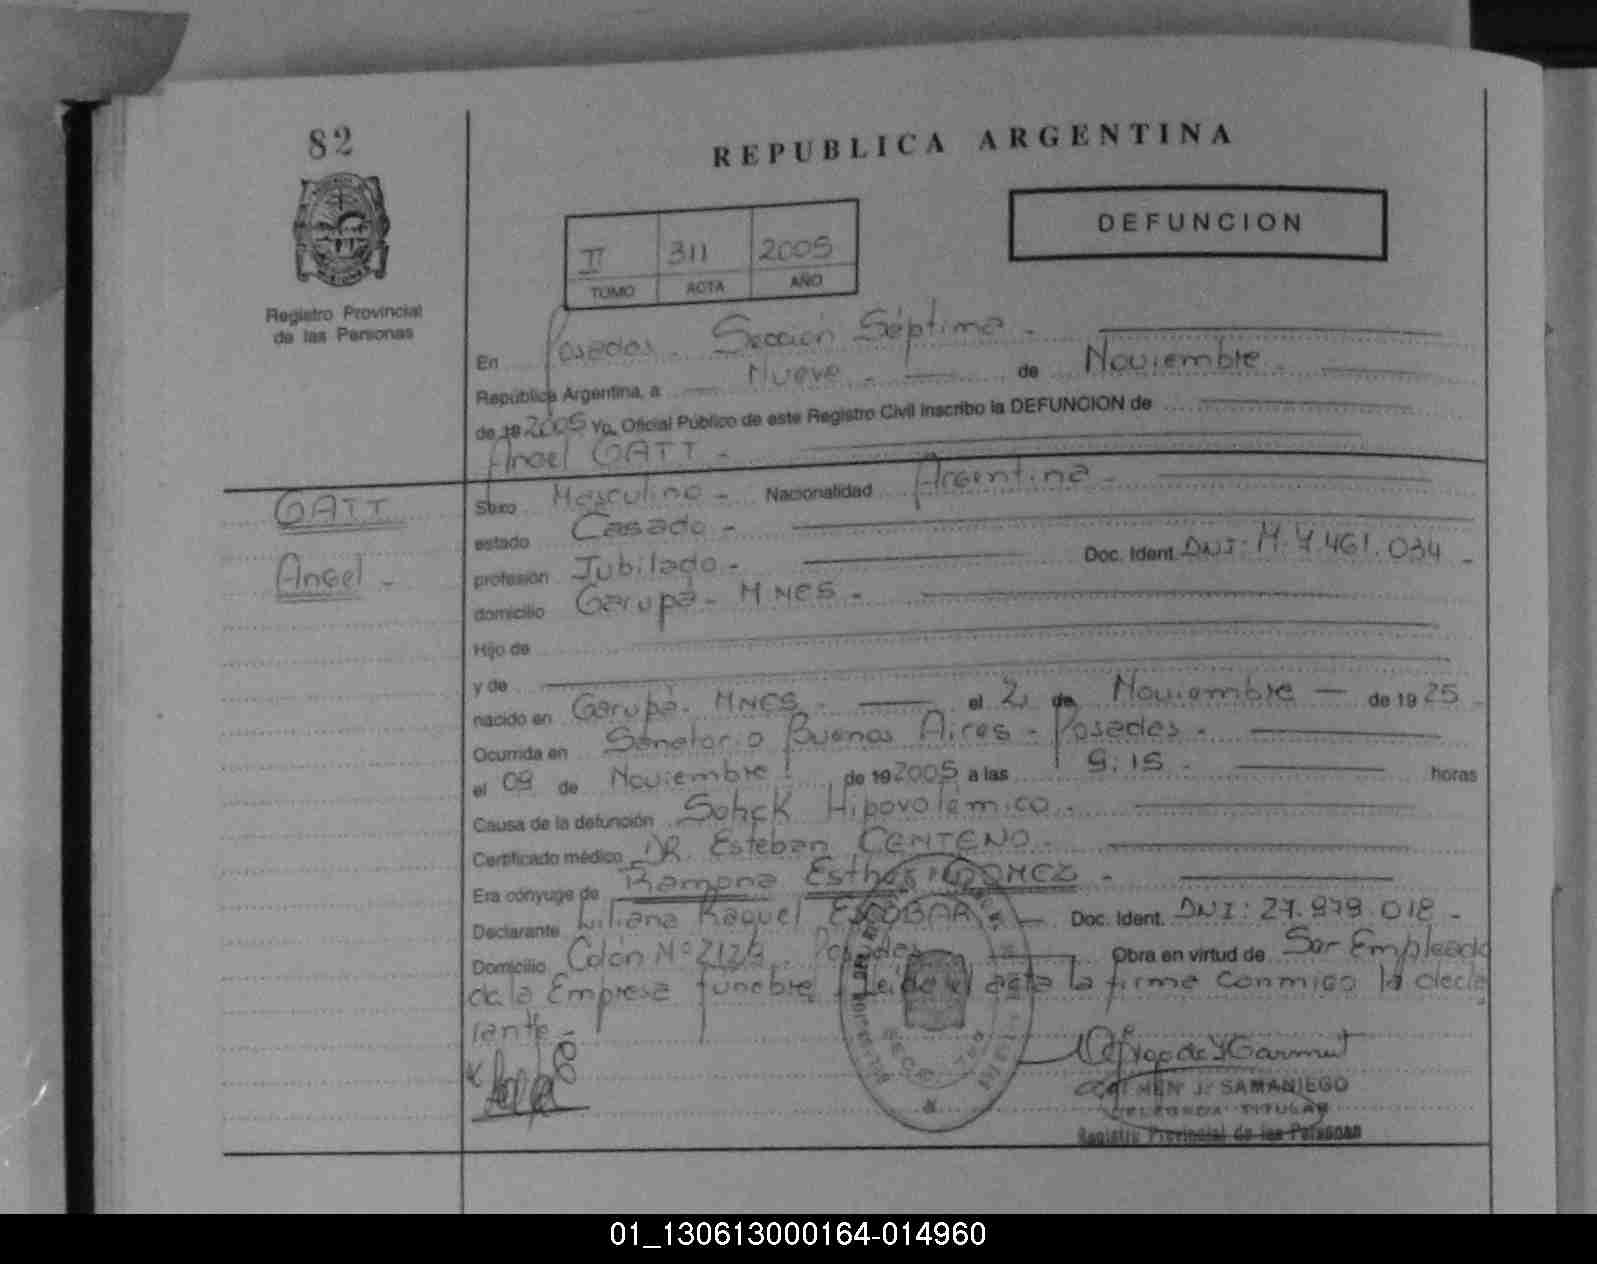 82
REPUBLICA ARGENTINA
DEFUNCION
II 311 2005
TOMO ACTA AÑO
Registro Provincial
de las Personas
En Posadas. Sección Séptima.
República Argentina, a Nueve. de Noviembre.
de 19 2005 Yo, Oficial Público de este Registro Civil inscribo la DEFUNCION de
Angel GATT.
GATT
Angel
Sexo Masculino Nacionalidad Argentina.
estado Casado
profesión Jubilado Doc. Ident. DNI: M. 7.461.034
domicilio Garupá. MNES.
Hijo de
y de
nacido en Garupá. MNES. el 2 de Noviembre de 19 25
Ocurrida en Sanatorio Buenos Aires - Posadas.
el 09 de Noviembre de 19 2005 a las 9:15 horas
Causa de la defunción Sohck Hipovolémico.
Certificado médico DR. Esteban CENTENO.
Era cónyuge de Ramona Esther GOMEZ
Declarante Liliana Raquel ESCOBAR Doc. Ident. DNI: 27.979.018
Domicilio Colón Nº Posadas Obra en virtud de Ser Empleada
de la Empresa funebre Leída el acta la firma conmigo la decla
rante.
CARMEN J. SAMANIEGO
DELEGADA TITULAR
Registro Provincial de las Personas
01_130613000164-014960